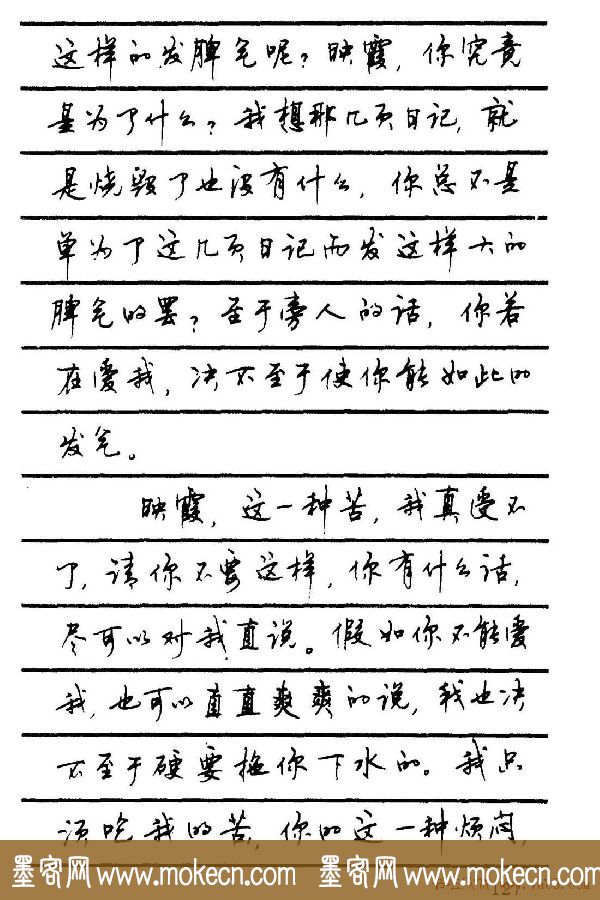 这样的发脾气呢？映霞，你究竟
是为了什么？我想那几页日记，就
是烧毁了也没有什么，你总不是
单为了这几页日记而发这样大的
脾气的罢？至于旁人的话，你若
在爱我，决不至于使你能如此的
发气。
映霞，这一种苦，我真受不
了，请你不要这样，你有什么话，
尽可以对我直说。假如你不能爱
我，也可以直直爽爽的说，我也决
不至于硬要拖你下水的。我只
须吃我的苦，你的这一种烦闷，
墨客网 www.mokecn.com 墨客网 www.mokecn.com